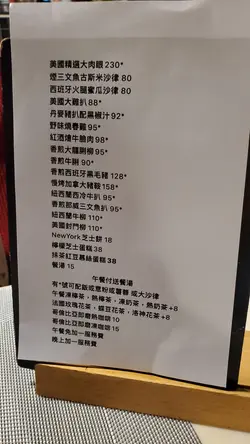 美國精選大肉眼 230*
煙三文魚古斯米沙律 80
西班牙火腿蜜瓜沙律 80
美國大雞扒 88*
丹麥豬扒配黑椒汁 92*
野味燒春雞 95*
紅酒燴牛脷肉 98*
香煎大龍脷柳 95*
香煎牛脷 90*
香煎西班牙黑毛豬 128*
慢烤加拿大豬鞍 158*
紐西蘭西冷牛扒 95*
香煎挪威三文魚扒 95*
紐西蘭牛柳 110*
美國封門柳 110*
NewYork芝士餅 18
檸檬芝士蛋糕 38
抹茶紅豆慕絲蛋糕 38
餐湯 15
午餐付送餐湯
有*號可配飯或意粉或薯蓉 或大沙律
午餐凍檸茶，熱檸茶，凍奶茶，熱奶茶+8
法國玫瑰花茶，蝶豆花茶，洛神花茶+8
哥倫比亞即磨熱咖啡 10
哥倫比亞即磨凍咖啡 15
午餐免加一服務費
晚上加一服務費